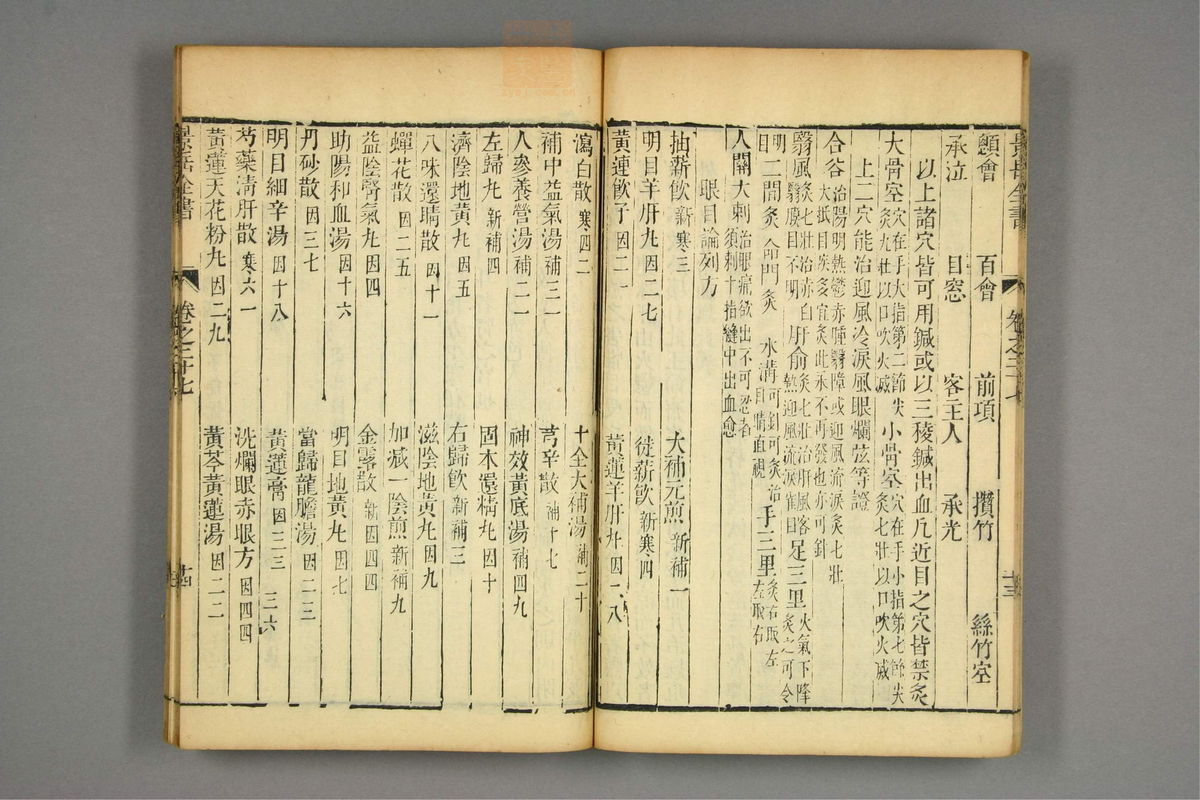 顖會 百會 前項 攢竹 絲竹空
承泣 目窓 客主人 承光
以上諸穴皆可用鍼或以三稜鍼出血凡近目之穴皆禁灸
大骨空穴在手大指第二節尖灸九壯以口吹火滅 小骨空穴在手小指第七節尖灸七壯以口吹火滅
上二穴能治迎風冷淚風眼爛弦等證
合谷治陽明熱鬱赤腫翳障或迎風流淚灸七壯大抵目疾多宜灸此永不再發也亦可針
翳風灸七壯治赤白翳膜目不明 肝俞灸七壯治肝風客熱迎風流淚雀目 足三里火氣下降灸之可令
目明 二間灸 命門灸 水溝可針可灸治目睛直視 手三里灸右取左左取右
八關大刺治眼痛欲出不可忍者須刺十指縫中出血愈
眼目論列方
抽薪飲新寒三 大補元煎新補一
明目羊肝丸因二七 徙薪飲新寒四
黃連飲子因二一 黃蓮羊肝丸因二八
瀉白散寒四二 十全大補湯補二十
補中益氣湯補三一 芎辛散補十七
人參養營湯補二一 神效黃底湯補四九
左歸丸新補四 固本還精丸因十
濟陰地黃丸因五 右歸飲新補三
八味還睛散因十一 滋陰地黃丸因九
蟬花散因二五 加減一陰煎新補九
益陰腎氣丸因四 金零散新因四四
助陽和血湯因十六 明目地黃丸因七
丹砂散因三七 當歸龍膽湯因二三
明目細辛湯因十八 黃蓮膏因三三 三六
芍藥清肝散寒六一 洗爛眼赤眼方因四四
黃蓮天花粉丸因二九 黃芩黃蓮湯因二二
景岳全書 卷之二十七